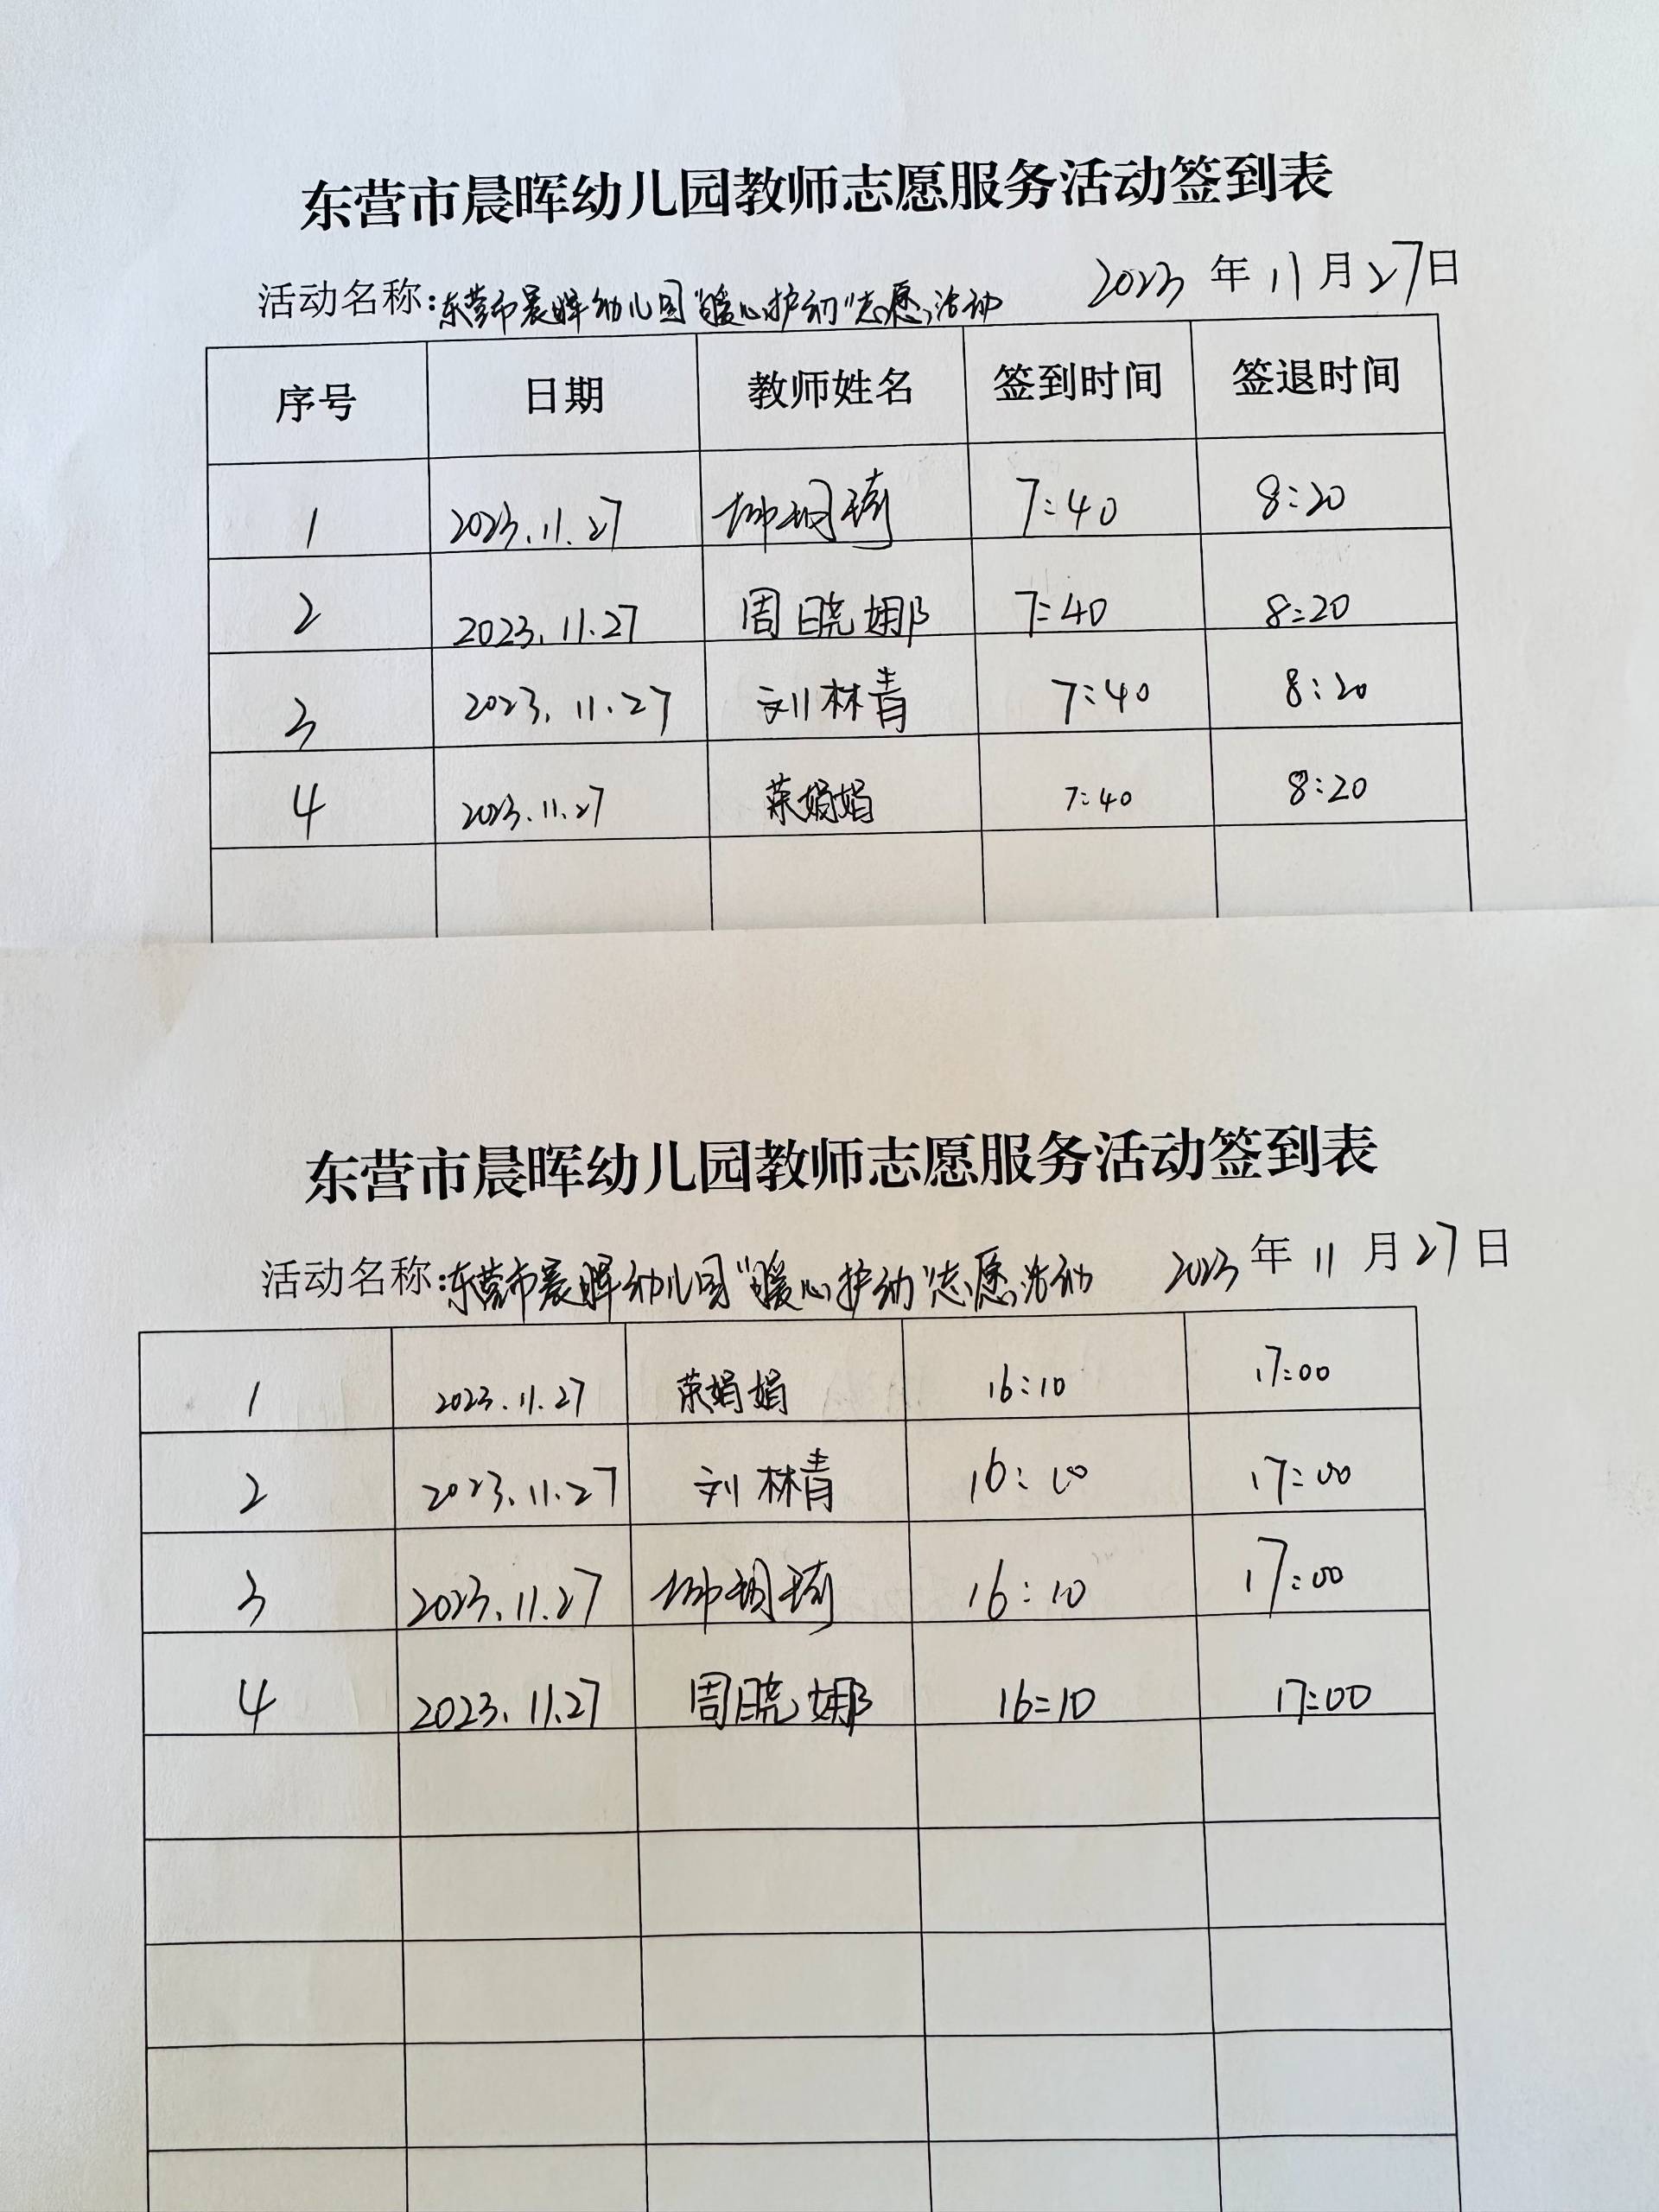 东营市晨晖幼儿园教师志愿服务活动签到表
活动名称:东营市晨晖幼儿园"暖心护幼"志愿活动 2023 年 11 月 27 日
序号 日期 教师姓名 签到时间 签退时间
1 2023.11.27 7:40 8:20
2 2023.11.27 周晓娜 7:40 8:20
3 2023.11.27 刘林青 7:40 8:20
4 2023.11.27 荣娟娟 7:40 8:20
东营市晨晖幼儿园教师志愿服务活动签到表
活动名称:东营市晨晖幼儿园"暖心护幼"志愿活动 2023 年 11 月 27 日
1 2023.11.27 荣娟娟 16:10 17:00
2 2023.11.27 刘林青 16:10 17:00
3 2023.11.27 16:10 17:00
4 2023.11.27 周晓娜 16:10 17:00